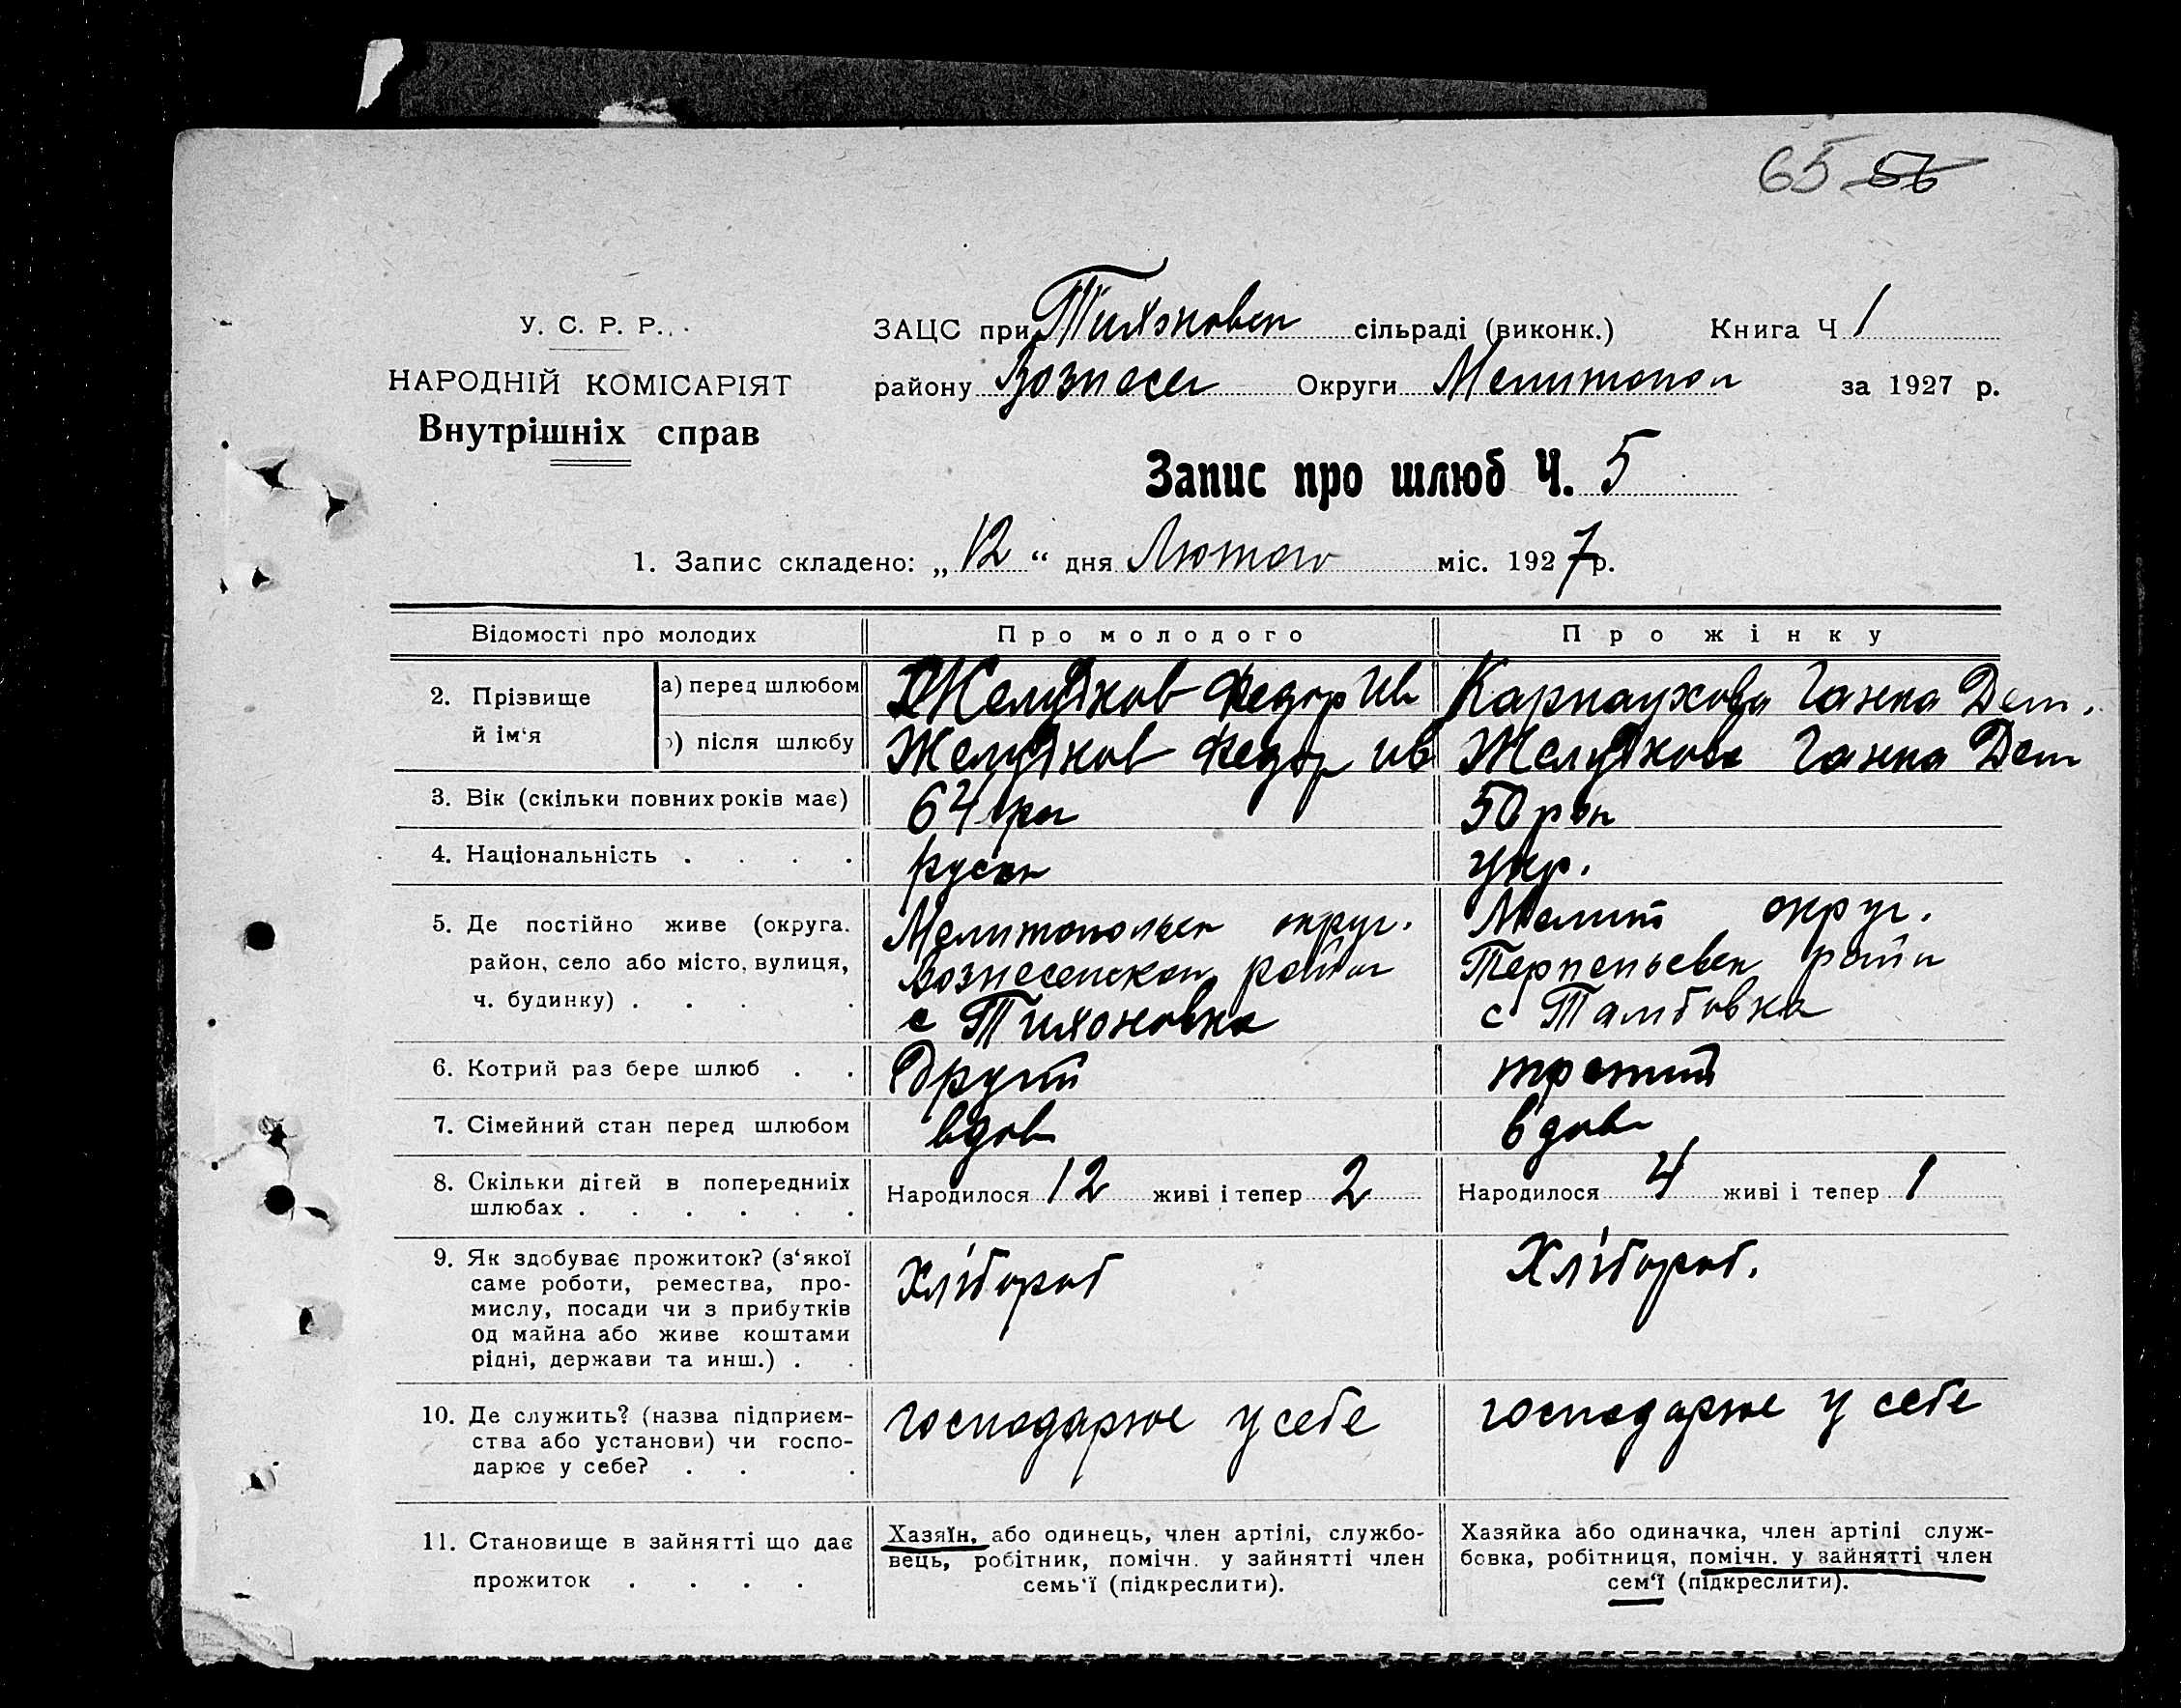 65 56
У. С. Р. Р.
НАРОДНІЙ КОМІСАРІЯТ
Внутрішніх справ
ЗАЦС при Тихоновск сільраді (виконк.) Книга Ч 1
району Вознесен Округи Мелитопол за 1927 р.
Запис про шлюб Ч. 5
1. Запис складено: „12“ дня Лютого міс. 1927 р.
Відомості про молодих Про молодого Про жінку
2. Прізвище й ім‘я
а) перед шлюбом Желудков Федор Ив Карнаухова Ганна Дем.
б) після шлюбу Желудков Федор ив Желудкова Ганна Дем
3. Вік (скільки повних років має) 64 рок 50 рок
4. Національність . . . . русск укр.
5. Де постійно живе (округа. Мелитопольск округ. Мелит округ.
район, село або місто, вулиця, Вознесенскоп район Терпеньевск район
ч. будинку) . . . . с Тихоновка с Тамбовка
6. Котрий раз бере шлюб . . Другий третий
7. Сімейний стан перед шлюбом вдов вдова
8. Скільки дітей в попередниіх шлюбах . . . . . . Народилося 12 живі і тепер 2 Народилося 4 живі і тепер 1
9. Як здобуває прожиток? (з‘якої Хлібороб Хлібороб.
саме роботи, ремества, про-
мислу, посади чи з прибутків
од майна або живе коштами
рідні, держави та инш.) . .
10. Де служить? (назва підприєм- господарює у себе господарює у себе
ства або установи) чи госпо-
дарює у себе? . . .
11. Становище в зайнятті що дає
прожиток . . . .
Хазяїн, або одинець, член артілі, службо-
вець, робітник, помічн. у зайнятті член
семь‘ї (підкреслити).
Хазяйка або одиначка, член артілі служ-
бовка, робітниця, помічн. у зайнятті член
сем‘ї (підкреслити).